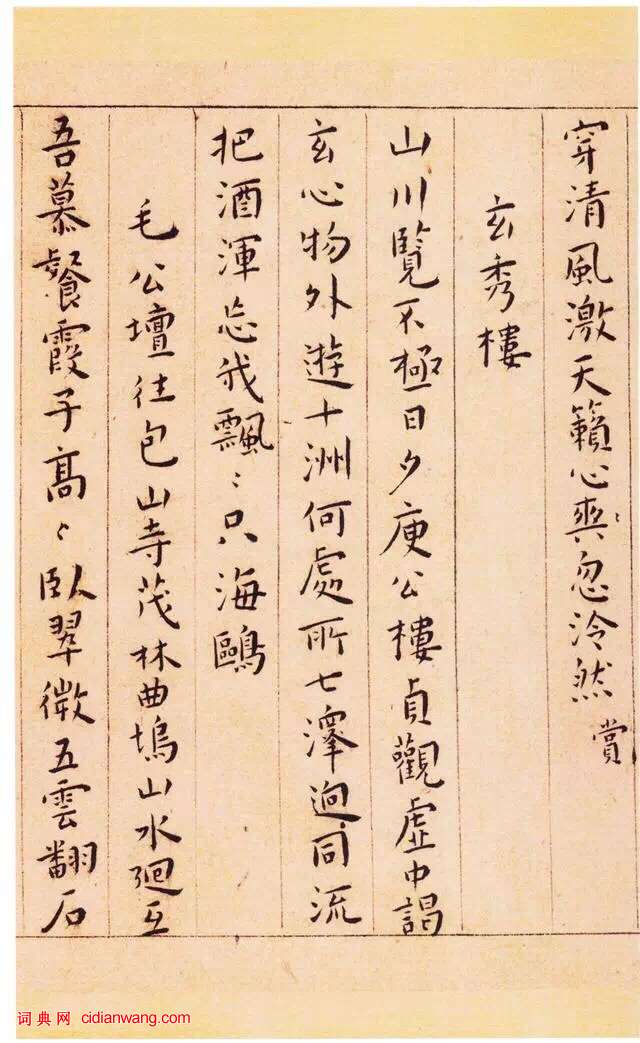 穿清風激天籟心與忽泠然 賞
玄秀樓
山川覽不極日夕庾公樓貞觀虛中謁
玄心物外遊十洲何處所七澤迥同流
把酒渾忘我飄〻只海鷗
毛公壇往包山寺茂林曲塢山水廻互
吾慕餐霞子高〻臥翠微五雲翻石
词典网 cidianwang.com